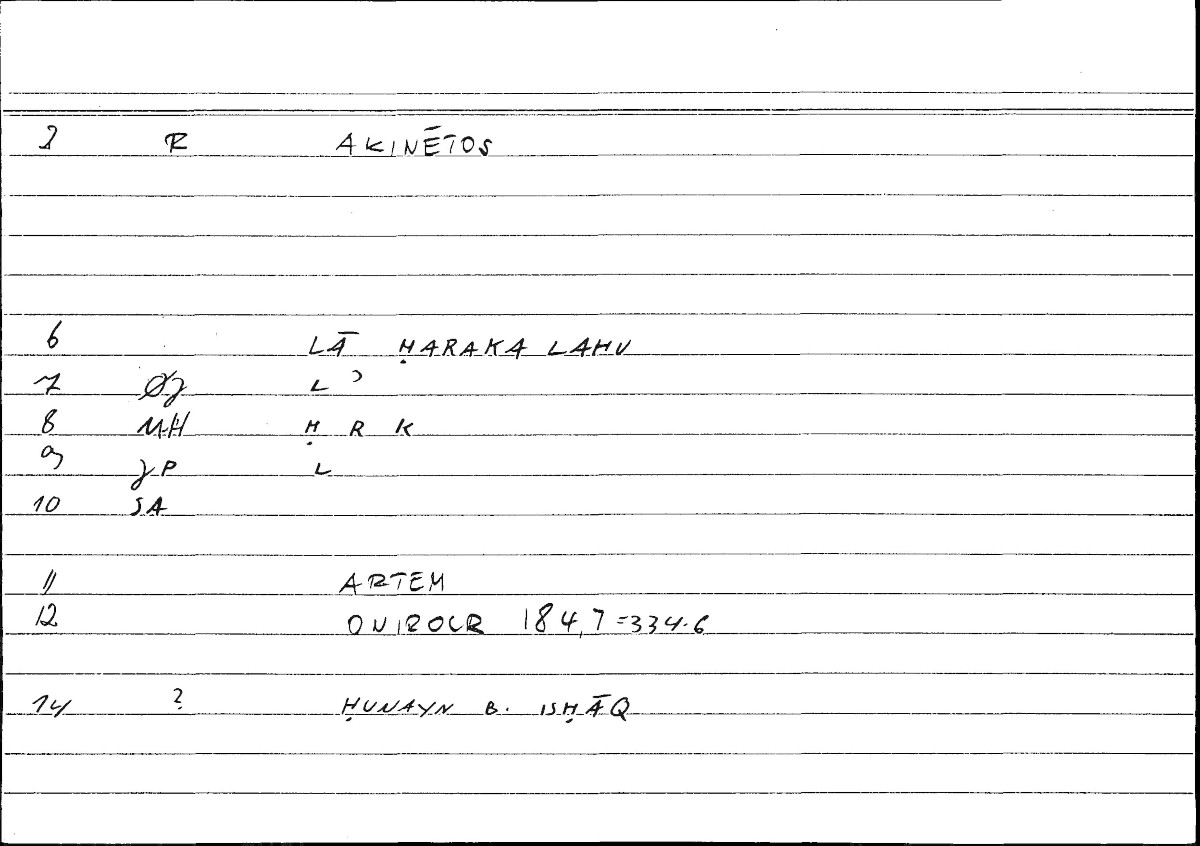 2 R AKINĒTOS
6 LĀ ḤARAKA LAHU
7 Øȷ L ʾ
8 MH Ḥ R K
9 ȷP L
10 SA
11 ARTEM
12 ONIROCR 184,7=334.6
14 ? ḤUNAYN B. ISḤĀQ